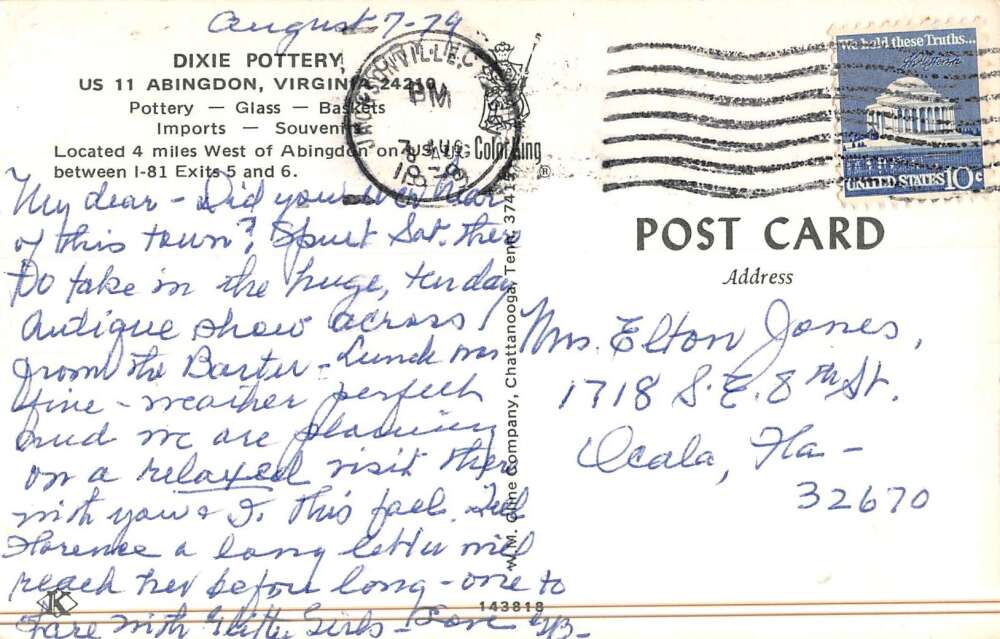 August 7-79
DIXIE POTTERY
US 11 ABINGDON, VIRGINIA 24210
Pottery — Glass — Baskets
Imports — Souvenirs
Located 4 miles West of Abingdon on US 11
between I-81 Exits 5 and 6.
PM
7 AUG
1979
ColorKing
®
We hold these Truths...
UNITED STATES 10c
My dear - Did you ever hear
of this town? Spent Sat. there
to take in the huge, ten day
Antique show across
from the Barter - Lunch was
fine - weather perfect
and we are planning
on a relaxed visit there
with you & J. this fall. Tell
Florence a long letter will
reach her before long - one to
share with Glitter Girls - Love
W. M. Cline Company, Chattanooga, Tenn. 37415
POST CARD
Address
Mrs. Elton Jones,
1718 S.E. 8th St.
Ocala, Fla -
32670
K
143818